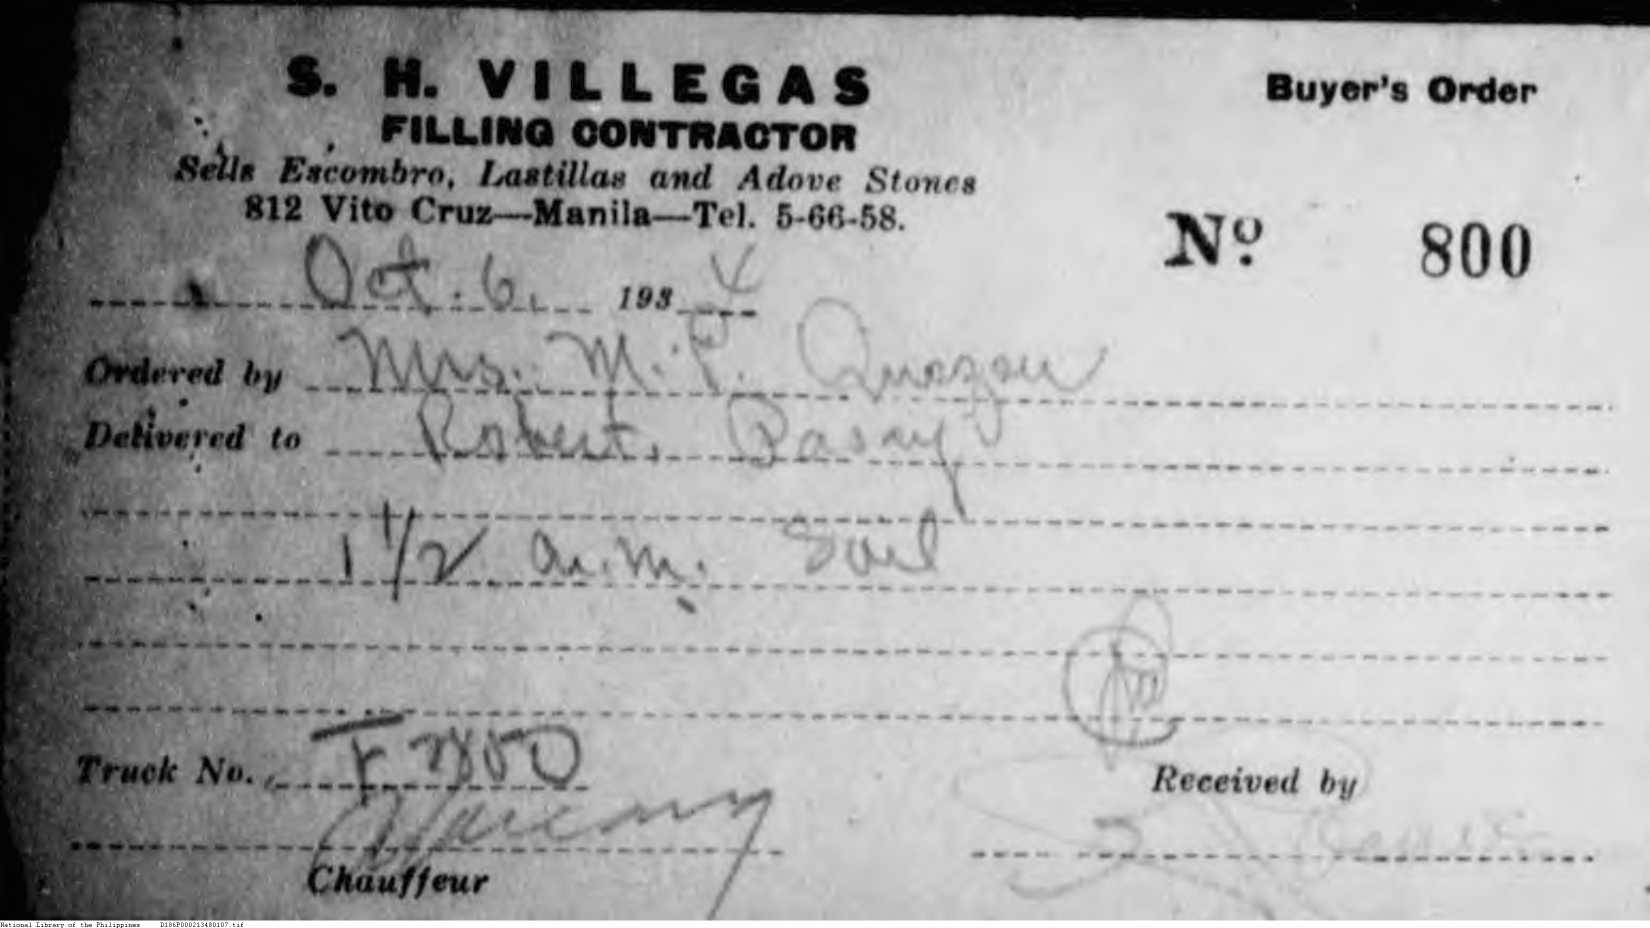 S. H. VILLEGAS
FILLING CONTRACTOR
Sells Escombro, Lastillas and Adove Stones
812 Vito Cruz—Manila—Tel. 5-66-58.
Buyer's Order
Nº 800
Oct. 6, 1934
Ordered by Mrs. M. P. Quezon
Delivered to Robert, Pasay
1 1/2 a.m. Soil
Truck No. T
Received by
Chauffeur
National Library of the Philippines D186P000213480107.tif